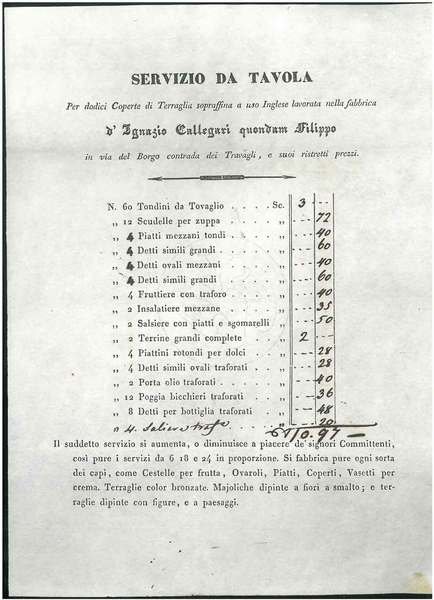 SERVIZIO DA TAVOLA
Per dodici Coperte di Terraglia sopraffina a uso Inglese lavorata nella fabbrica
d' Ignazio Callegari quondam Filippo
in via del Borgo contrada dei Travagli, e suoi ristretti prezzi.
N. 60 Tondini da Tovaglio . . . . Sc. 3 . --
„ 12 Scudelle per zuppa . . . . „ --- 72
„ 4 Piatti mezzani tondi . . . . „ --- 40
„ 4 Detti simili grandi . . . . „ --- 60
„ 4 Detti ovali mezzani . . . . „ --- 40
„ 4 Detti simili grandi . . . . „ --- 60
„ 4 Fruttiere con traforo . . . . „ --- 40
„ 2 Insalatiere mezzane . . . . „ --- 35
„ 2 Salsiere con piatti e sgomarelli „ --- 50
„ 2 Terrine grandi complete . . „ 2 --
„ 4 Piattini rotondi per dolci . . „ --- 28
„ 4 Detti simili ovali traforati . . „ --- 28
„ 2 Porta olio traforati . . . . „ --- 40
„ 12 Poggia bicchieri traforati . . „ --- 36
„ 8 Detti per bottiglia traforati . „ --- 48
„ 4. Saliere --- 20
10.97 —
Il suddetto servizio si aumenta, o diminuisce a piacere de' signori Committenti,
così pure i servizi da 6 18 e 24 in proporzione. Si fabbrica pure ogni sorta
dei capi, come Cestelle per frutta, Ovaroli, Piatti, Coperti, Vasetti per
crema. Terraglie color bronzate. Majoliche dipinte a fiori a smalto; e ter-
raglie dipinte con figure, e a paesaggi.